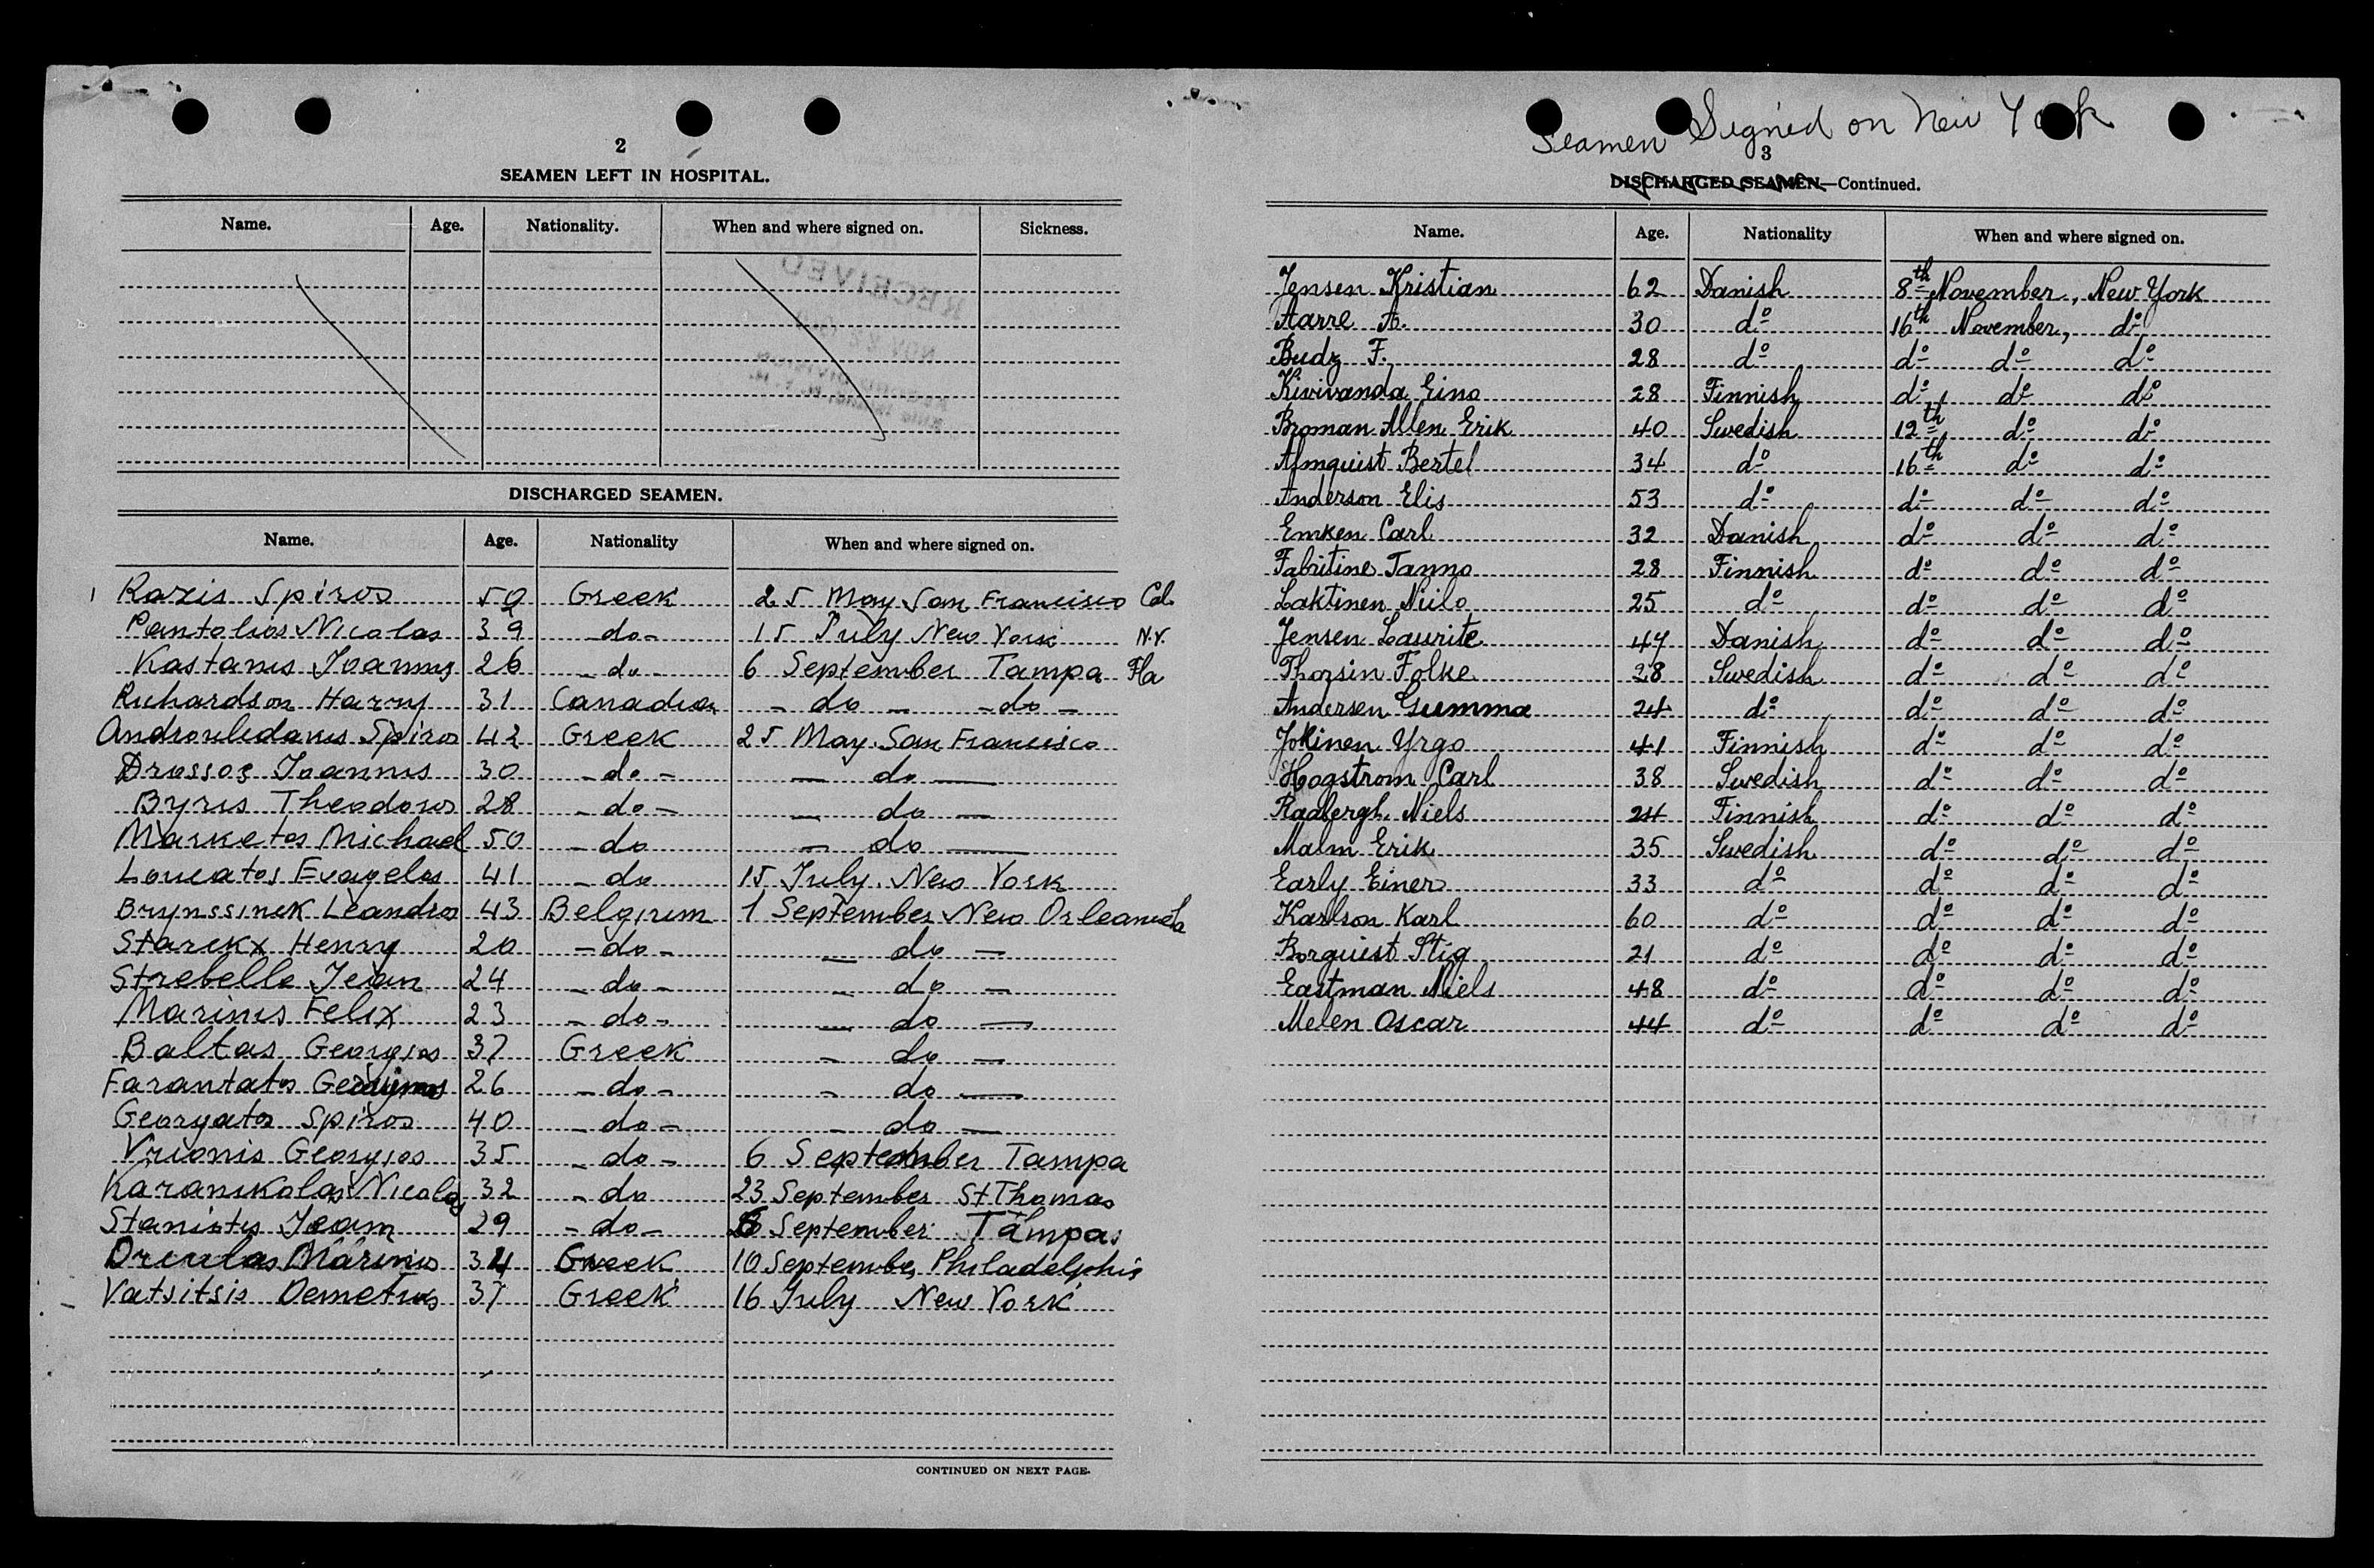 2
SEAMEN LEFT IN HOSPITAL.
Name. Age. Nationality. When and where signed on. Sickness.
RECEIVED
NOV 22
DISCHARGED SEAMEN.
Name. Age. Nationality When and where signed on.
1 Razis Spiros 59 Greek 25 May San Francisco Cal.
Pantolios Nicolas 39 -do- 15 July New York N.Y.
Kastanis Ioannis 26 -do- 6 September Tampa Fla
Richardson Harry 31 Canadian -do- -do-
Androulidanis Spiros 42 Greek 25 May San Francisco
Drossos Ioannis 30 -do- -do-
Byris Theodoros 28 -do- -do-
Marketos Michael 50 -do -do-
Loucatos Evagelos 41 -do 15 July New York
Brynssinck Leandro 43 Belgium 1 September New Orleans La
Starckx Henry 20 -do- -do-
Strebelle Jean 24 -do- -do-
Marinis Felix 23 -do- -do-
Baltas Georgios 37 Greek -do-
Farantatos 26 -do- -do-
Georgatos Spiros 40 -do- -do-
Vrionis Georgios 35 -do- 6 September Tampa
Karanikolas Nicolas 32 -do 23 September St Thomas
Stanistis Jean 29 -do- 6 September Tampa
Marinos 34 Greek 10 September Philadelphia
Vatsitsis Demetrios 37 Greek 16 July New York
CONTINUED ON NEXT PAGE.
Seamen Signed on New York
3
DISCHARGED SEAMEN—Continued.
Name. Age. Nationality When and where signed on.
Jensen Kristian 62 Danish 8th November, New York
Aarre A. 30 do 16th November, do
Budz F. 28 do do do do
Kivivanda Eino 28 Finnish do do do
Broman Allen Erik 40 Swedish 12th do do
Almquist Bertel 34 do 16th do do
Anderson Elis 53 do do do do
Emken Carl 32 Danish do do do
Fabritine Tanno 28 Finnish do do do
Laktinen Niilo 25 do do do do
Jensen Laurite 47 Danish do do do
Thorsin Folke 28 Swedish do do do
Andersen Gumma 24 do do do do
Jokinen Yrgo 41 Finnish do do do
Hogstrom Carl 38 Swedish do do do
Radbergh Niels 24 Finnish do do do
Malm Erik 35 Swedish do do do
Early Einer 33 do do do do
Karlson Karl 60 do do do do
Borguist Stig 21 do do do do
Eastman Niels 48 do do do do
Melen Oscar 44 do do do do